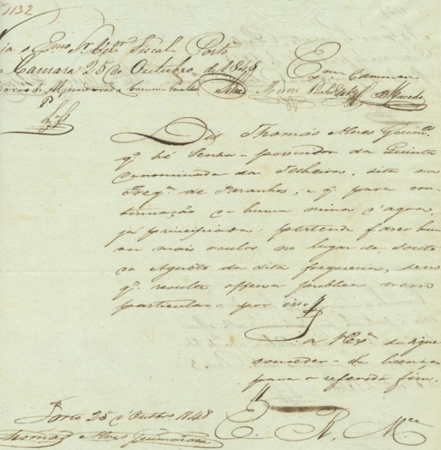 1132
Fiscal. Porto
Camara 25 de Outubro de 1848
Exm.ª Camara
Diz Thomás Alves Guim.es
q. hé Senhor e possuidor da Quinta
denominada da Telheira, sita na
Freg.ª de Paranhos, e q. para con-
tinuação de huma mina d'agua,
já principiada: pertende fazer hum
ou mais oculos no lugar do
da dita freguezia, sem
q. resulte offensa publica nem
particular: por isso
a V Ex.ª digne
conceder-lhe licença
para o referido fim.
Porto 25 d'Outbro 1848
E. R. M.ce
Thomaz Alves Guimarães